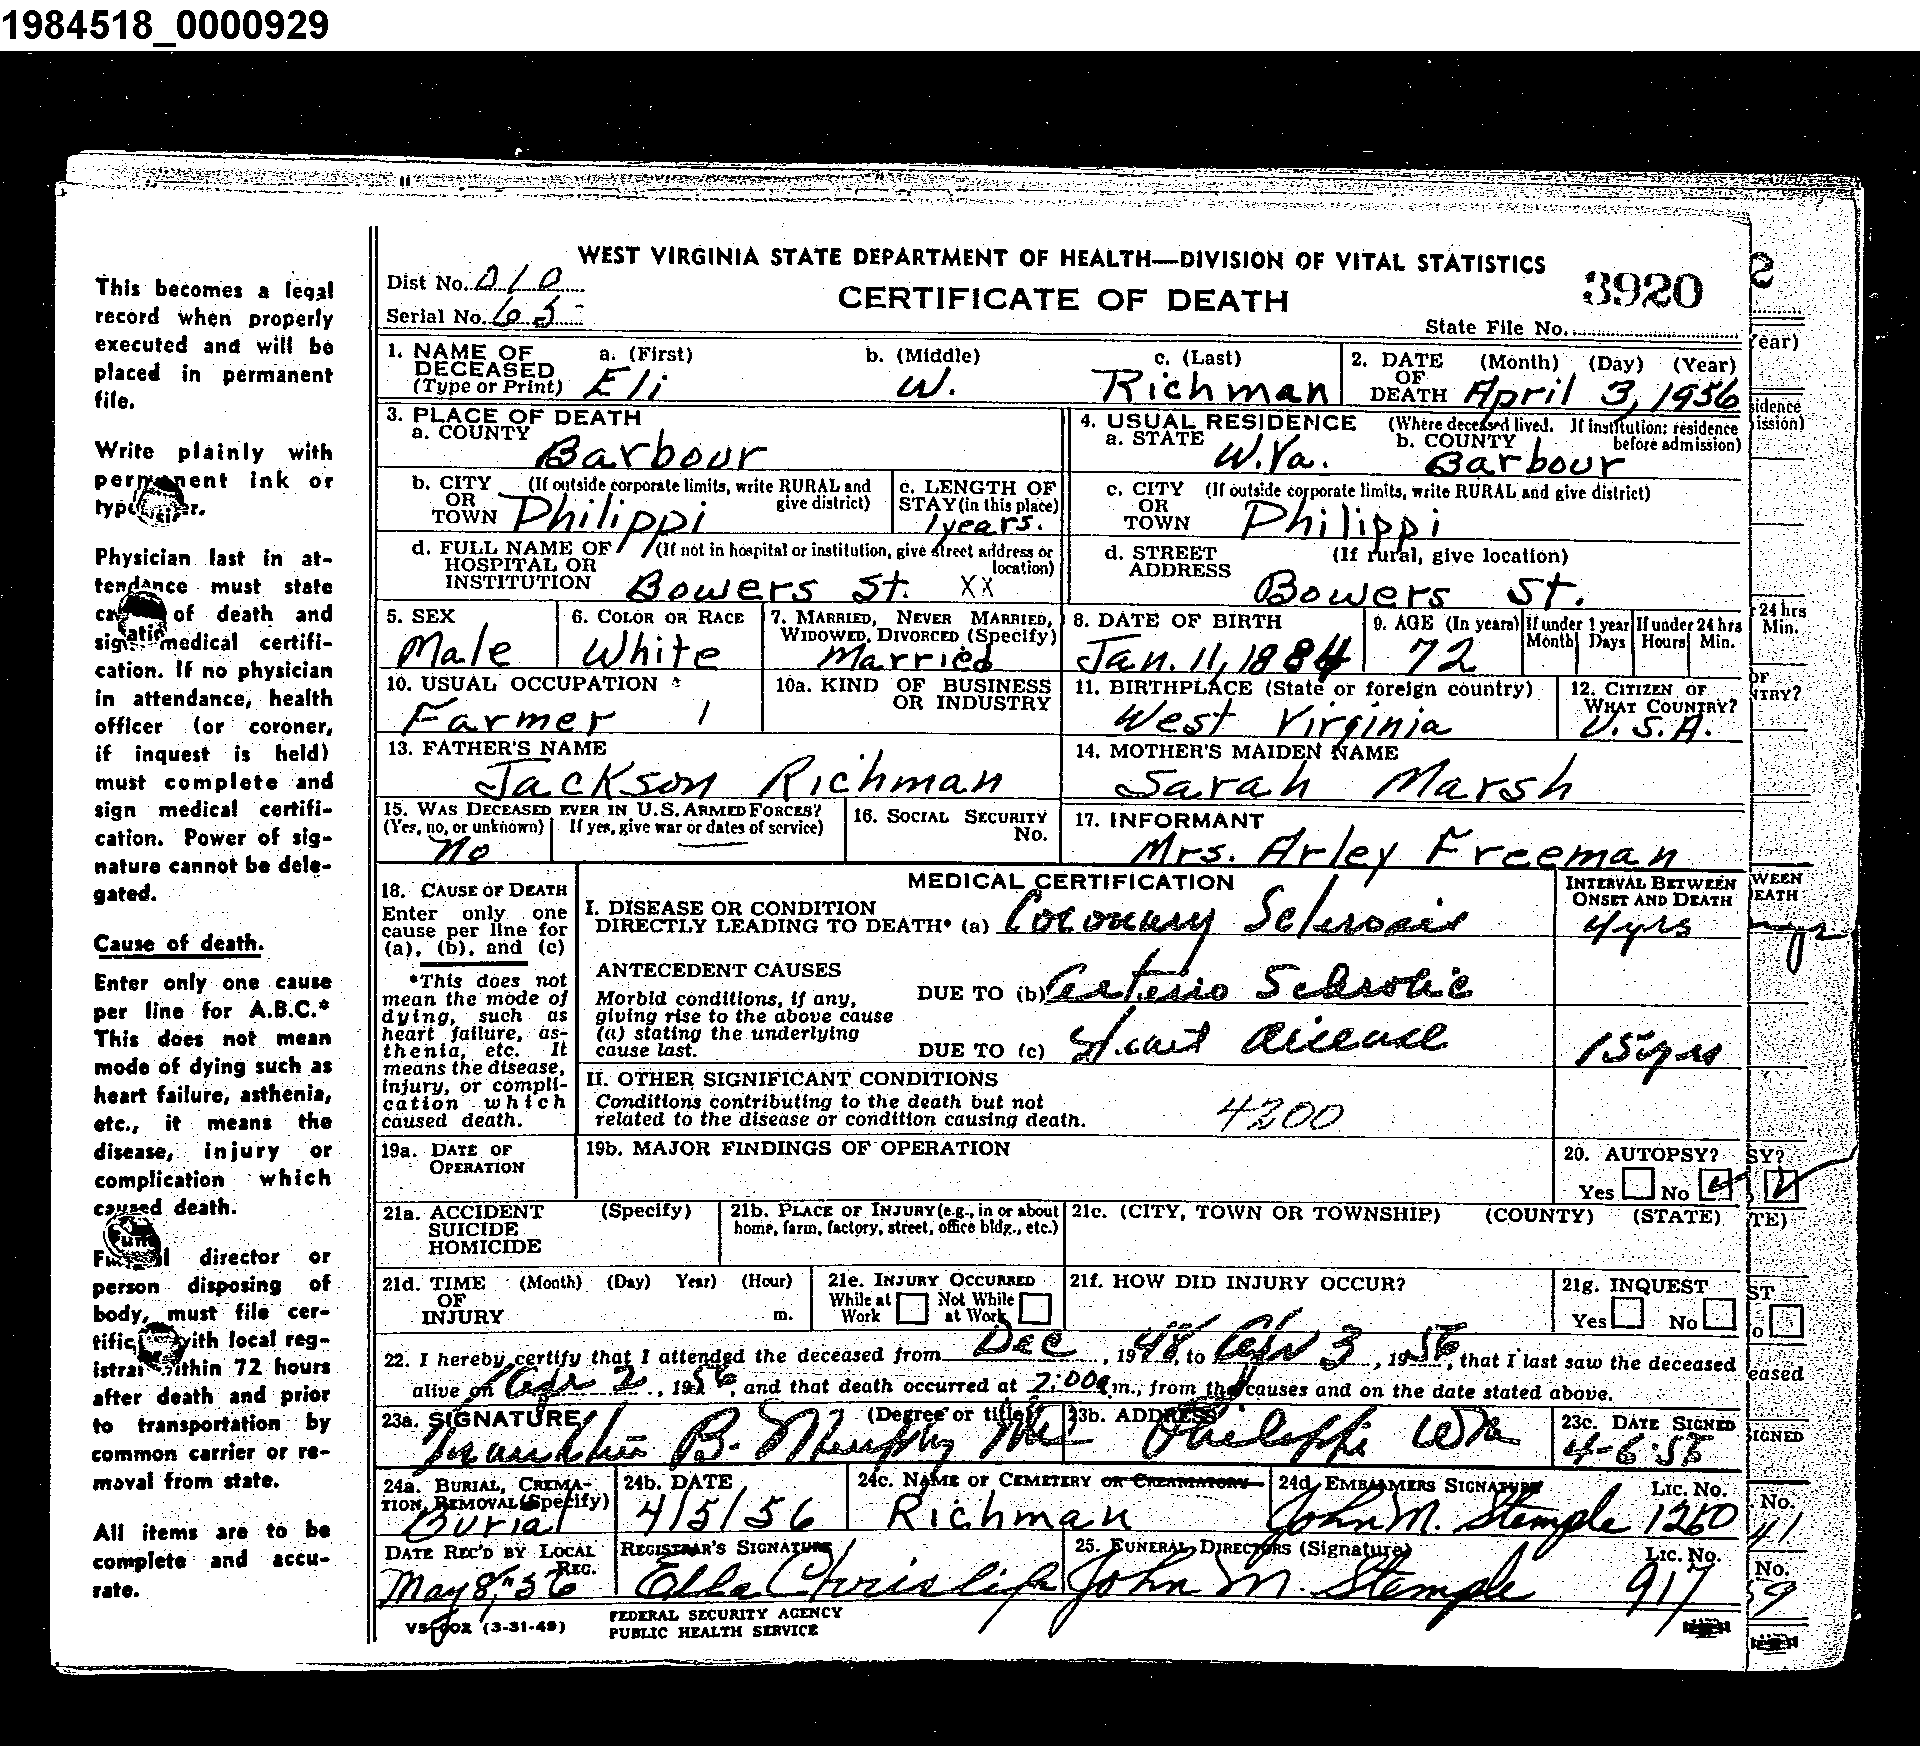 1984518_0000929
WEST VIRGINIA STATE DEPARTMENT OF HEALTH—DIVISION OF VITAL STATISTICS
Dist No. 010
CERTIFICATE OF DEATH
3920
Serial No. 65
State File No.
1. NAME OF DECEASED (Type or Print) a. (First) b. (Middle) c. (Last)
Eli W. Richman
2. DATE OF DEATH (Month) (Day) (Year)
April 3, 1956
3. PLACE OF DEATH
a. COUNTY Barbour
4. USUAL RESIDENCE (Where deceased lived. If institution: residence before admission)
a. STATE W.Va. b. COUNTY Barbour
b. CITY OR TOWN (If outside corporate limits, write RURAL and give district) Philippi
c. LENGTH OF STAY (in this place) 1 years.
c. CITY OR TOWN (If outside corporate limits, write RURAL and give district) Philippi
d. FULL NAME OF HOSPITAL OR INSTITUTION (If not in hospital or institution, give street address or location) Bowers St. XX
d. STREET ADDRESS (If rural, give location) Bowers St.
5. SEX Male
6. COLOR OR RACE White
7. MARRIED, NEVER MARRIED, WIDOWED, DIVORCED (Specify) Married
8. DATE OF BIRTH Jan. 11, 1884
9. AGE (In years) 72
If under 1 year Month Days
If under 24 hrs Hours Min.
10. USUAL OCCUPATION Farmer 1
10a. KIND OF BUSINESS OR INDUSTRY
11. BIRTHPLACE (State or foreign country) West Virginia
12. CITIZEN OF WHAT COUNTRY? U.S.A.
13. FATHER'S NAME Jackson Richman
14. MOTHER'S MAIDEN NAME Sarah Marsh
15. WAS DECEASED EVER IN U.S. ARMED FORCES? (Yes, no, or unknown) If yes, give war or dates of service) No
16. SOCIAL SECURITY No.
17. INFORMANT Mrs. Arley Freeman
18. CAUSE OF DEATH
Enter only one cause per line for (a), (b), and (c)
*This does not mean the mode of dying, such as heart failure, asthenia, etc. It means the disease, injury, or complication which caused death.
MEDICAL CERTIFICATION
INTERVAL BETWEEN ONSET AND DEATH
I. DISEASE OR CONDITION DIRECTLY LEADING TO DEATH* (a) Coronary Sclerosis 4 yrs
ANTECEDENT CAUSES
Morbid conditions, if any, giving rise to the above cause (a) stating the underlying cause last.
DUE TO (b) Arterio Sclerotic
DUE TO (c) Heart disease 15 yrs
II. OTHER SIGNIFICANT CONDITIONS
Conditions contributing to the death but not related to the disease or condition causing death.
4200
19a. DATE OF OPERATION
19b. MAJOR FINDINGS OF OPERATION
20. AUTOPSY? Yes No
21a. ACCIDENT SUICIDE HOMICIDE (Specify)
21b. PLACE OF INJURY (e.g., in or about home, farm, factory, street, office bldg., etc.)
21c. (CITY, TOWN OR TOWNSHIP) (COUNTY) (STATE)
21d. TIME OF INJURY (Month) (Day) Year) (Hour) m.
21e. INJURY OCCURRED While at Work Not While at Work
21f. HOW DID INJURY OCCUR?
21g. INQUEST Yes No
22. I hereby certify that I attended the deceased from Dec, 1948, to Apr 3, 1956, that I last saw the deceased
alive on Apr 2, 1956, and that death occurred at 7:00 a m., from the causes and on the date stated above.
23a. SIGNATURE (Degree or title) B. Murphy MD
23b. ADDRESS Philippi WVa
23c. DATE SIGNED 4-6-56
24a. BURIAL, CREMATION, REMOVAL (Specify) Burial
24b. DATE 4/5/56
24c. NAME OF CEMETERY OR CREMATORY Richman
24d. EMBALMERS SIGNATURE John M. Stemple Lic. No. 1260
DATE REC'D BY LOCAL REG. May 8, 56
REGISTRAR'S SIGNATURE Ella Chrislip
25. FUNERAL DIRECTORS (Signature) John M. Stemple Lic. No. 917
(3-31-49)
FEDERAL SECURITY AGENCY
PUBLIC HEALTH SERVICE
This becomes a legal
record when properly
executed and will be
placed in permanent
file.
Write plainly with
permanent ink or
typewriter.
Physician last in at-
tendance must state
cause of death and
sign medical certifi-
cation. If no physician
in attendance, health
officer (or coroner,
if inquest is held)
must complete and
sign medical certifi-
cation. Power of sig-
nature cannot be dele-
gated.
Cause of death.
Enter only one cause
per line for A.B.C.*
This does not mean
mode of dying such as
heart failure, asthenia,
etc., it means the
disease, injury or
complication which
caused death.
Funeral director or
person disposing of
body, must file cer-
tificate with local reg-
istrar within 72 hours
after death and prior
to transportation by
common carrier or re-
moval from state.
All items are to be
complete and accu-
rate.